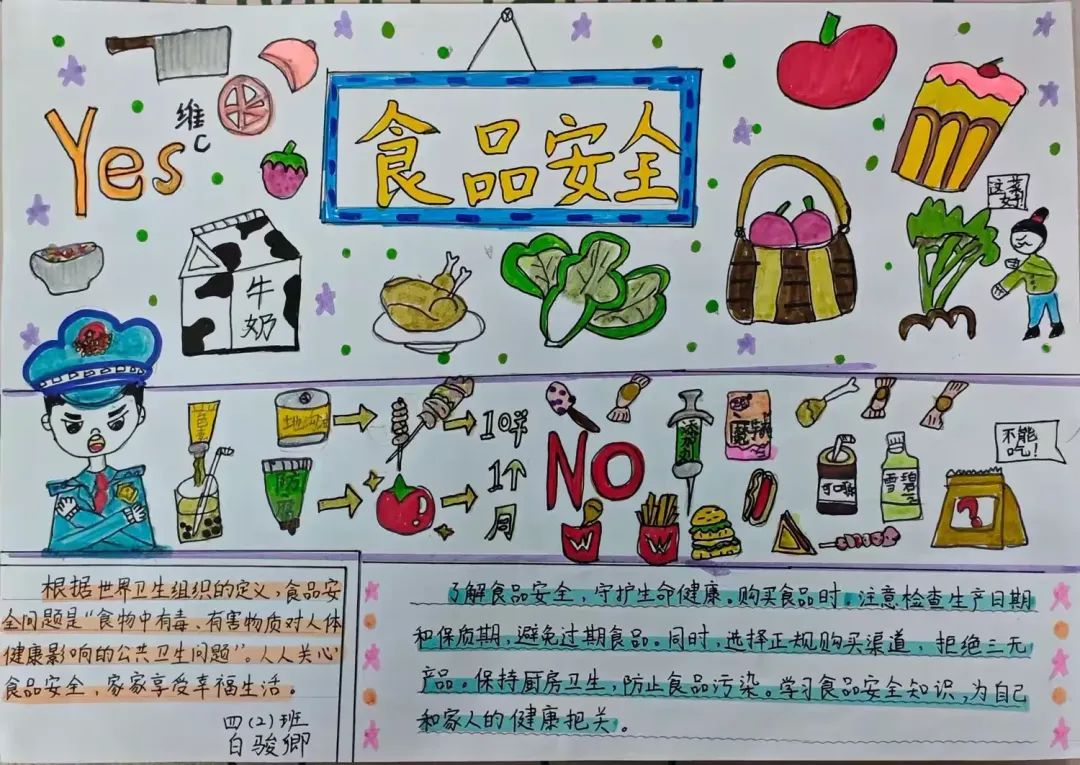 食品安全
Yes
维
C
牛
奶
这菜
好
色素
地沟油
防腐
10串
1个
月
NO
添加剂
不能
吃！
可
雪碧
?
W
W
根据世界卫生组织的定义，食品安
全问题是“食物中有毒、有害物质对人体
健康影响的公共卫生问题”。人人关心
食品安全，家家享受幸福生活。
四（2）班
白骏卿
了解食品安全，守护生命健康。购买食品时，注意检查生产日期
和保质期，避免过期食品。同时，选择正规购买渠道，拒绝三无
产品。保持厨房卫生，防止食品污染。学习食品安全知识，为自己
和家人的健康把关。